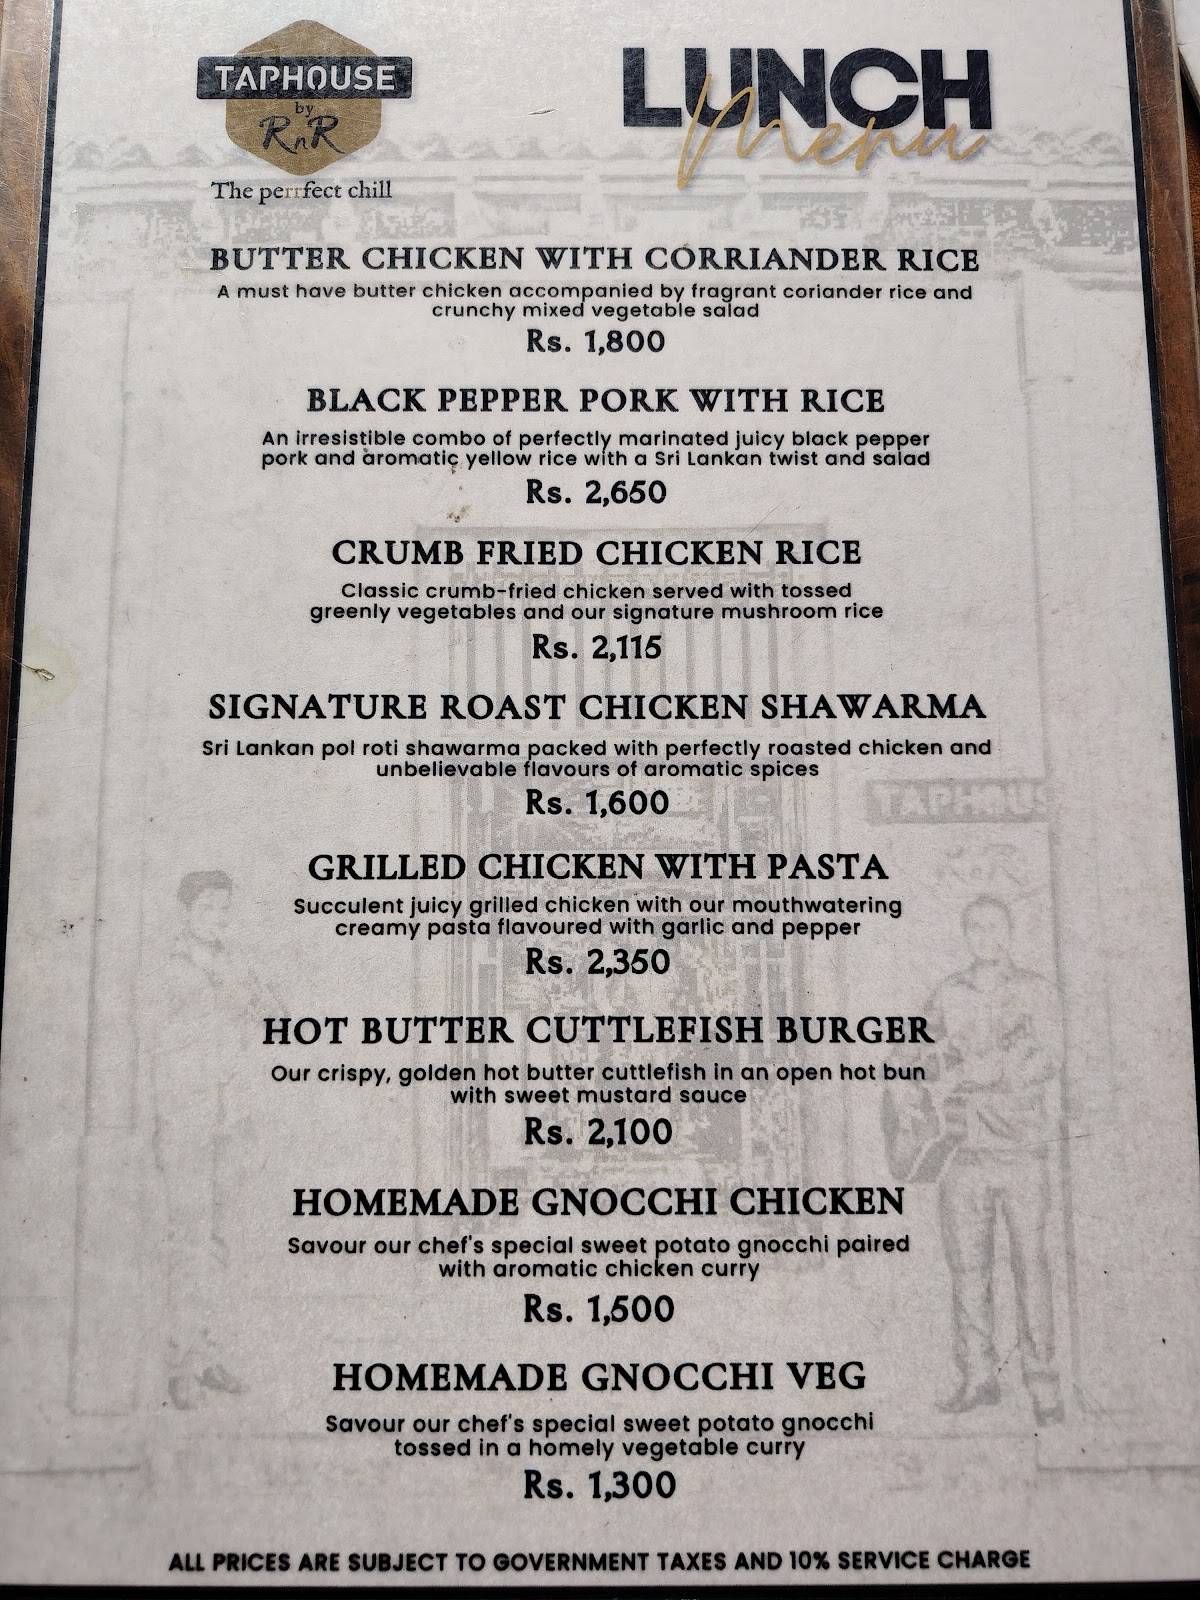 TAPHOUSE
by
RnR
The perrfect chill
LUNCH
Menu
BUTTER CHICKEN WITH CORRIANDER RICE
A must have butter chicken accompanied by fragrant coriander rice and
crunchy mixed vegetable salad
Rs. 1,800
BLACK PEPPER PORK WITH RICE
An irresistible combo of perfectly marinated juicy black pepper
pork and aromatic yellow rice with a Sri Lankan twist and salad
Rs. 2,650
CRUMB FRIED CHICKEN RICE
Classic crumb-fried chicken served with tossed
greenly vegetables and our signature mushroom rice
Rs. 2,115
SIGNATURE ROAST CHICKEN SHAWARMA
Sri Lankan pol roti shawarma packed with perfectly roasted chicken and
unbelievable flavours of aromatic spices
Rs. 1,600
TAPHOUS
GRILLED CHICKEN WITH PASTA
Succulent juicy grilled chicken with our mouthwatering
creamy pasta flavoured with garlic and pepper
Rs. 2,350
HOT BUTTER CUTTLEFISH BURGER
Our crispy, golden hot butter cuttlefish in an open hot bun
with sweet mustard sauce
Rs. 2,100
HOMEMADE GNOCCHI CHICKEN
Savour our chef's special sweet potato gnocchi paired
with aromatic chicken curry
Rs. 1,500
HOMEMADE GNOCCHI VEG
Savour our chef's special sweet potato gnocchi
tossed in a homely vegetable curry
Rs. 1,300
ALL PRICES ARE SUBJECT TO GOVERNMENT TAXES AND 10% SERVICE CHARGE